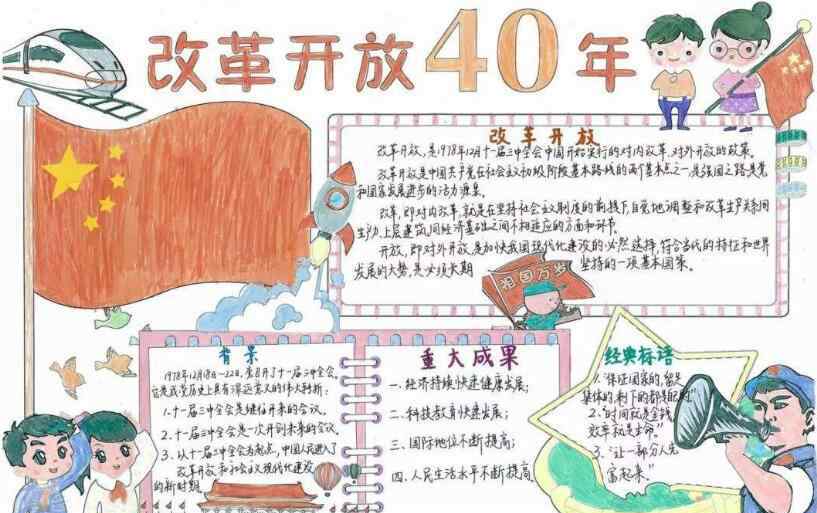 改革开放40年
改革开放
改革开放,是1978年12月十一届三中全会中国开始实行的对内改革、对外开放的政策。
改革开放是中国共产党在社会主义初级阶段基本路线的两个基本点之一,是强国之路,是党
和国家发展进步的活力源泉。
改革,即对内改革,就是在坚持社会主义制度的前提下,自觉地调整和改革生产关系同
生产力、上层建筑同经济基础之间不相适应的方面和环节。
开放,即对外开放,是加快我国现代化建设的必然选择,符合当代的特征和世界
发展的大势,是必须长期坚持的一项基本国策。
祖国万岁
背景
1978年12月18日—22日,党召开了十一届三中全会,
它是我党历史上具有深远意义的伟大转折:
1.十一届三中全会是继往开来的会议。
2.十一届三中全会是一次开创未来的会议。
3.以十一届三中全会为起点,中国人民进入了
改革开放和社会主义现代化建设
的新时期。
重大成果
一、经济持续快速健康发展;
二、科技教育快速发展;
三、国际地位不断提高;
四、人民生活水平不断提高
经典标语
1.“保证国家的,留足
集体的,剩下的都是自己的”
2.“时间就是金钱,
效率就是生命。”
3.“让一部分人先
富起来。”